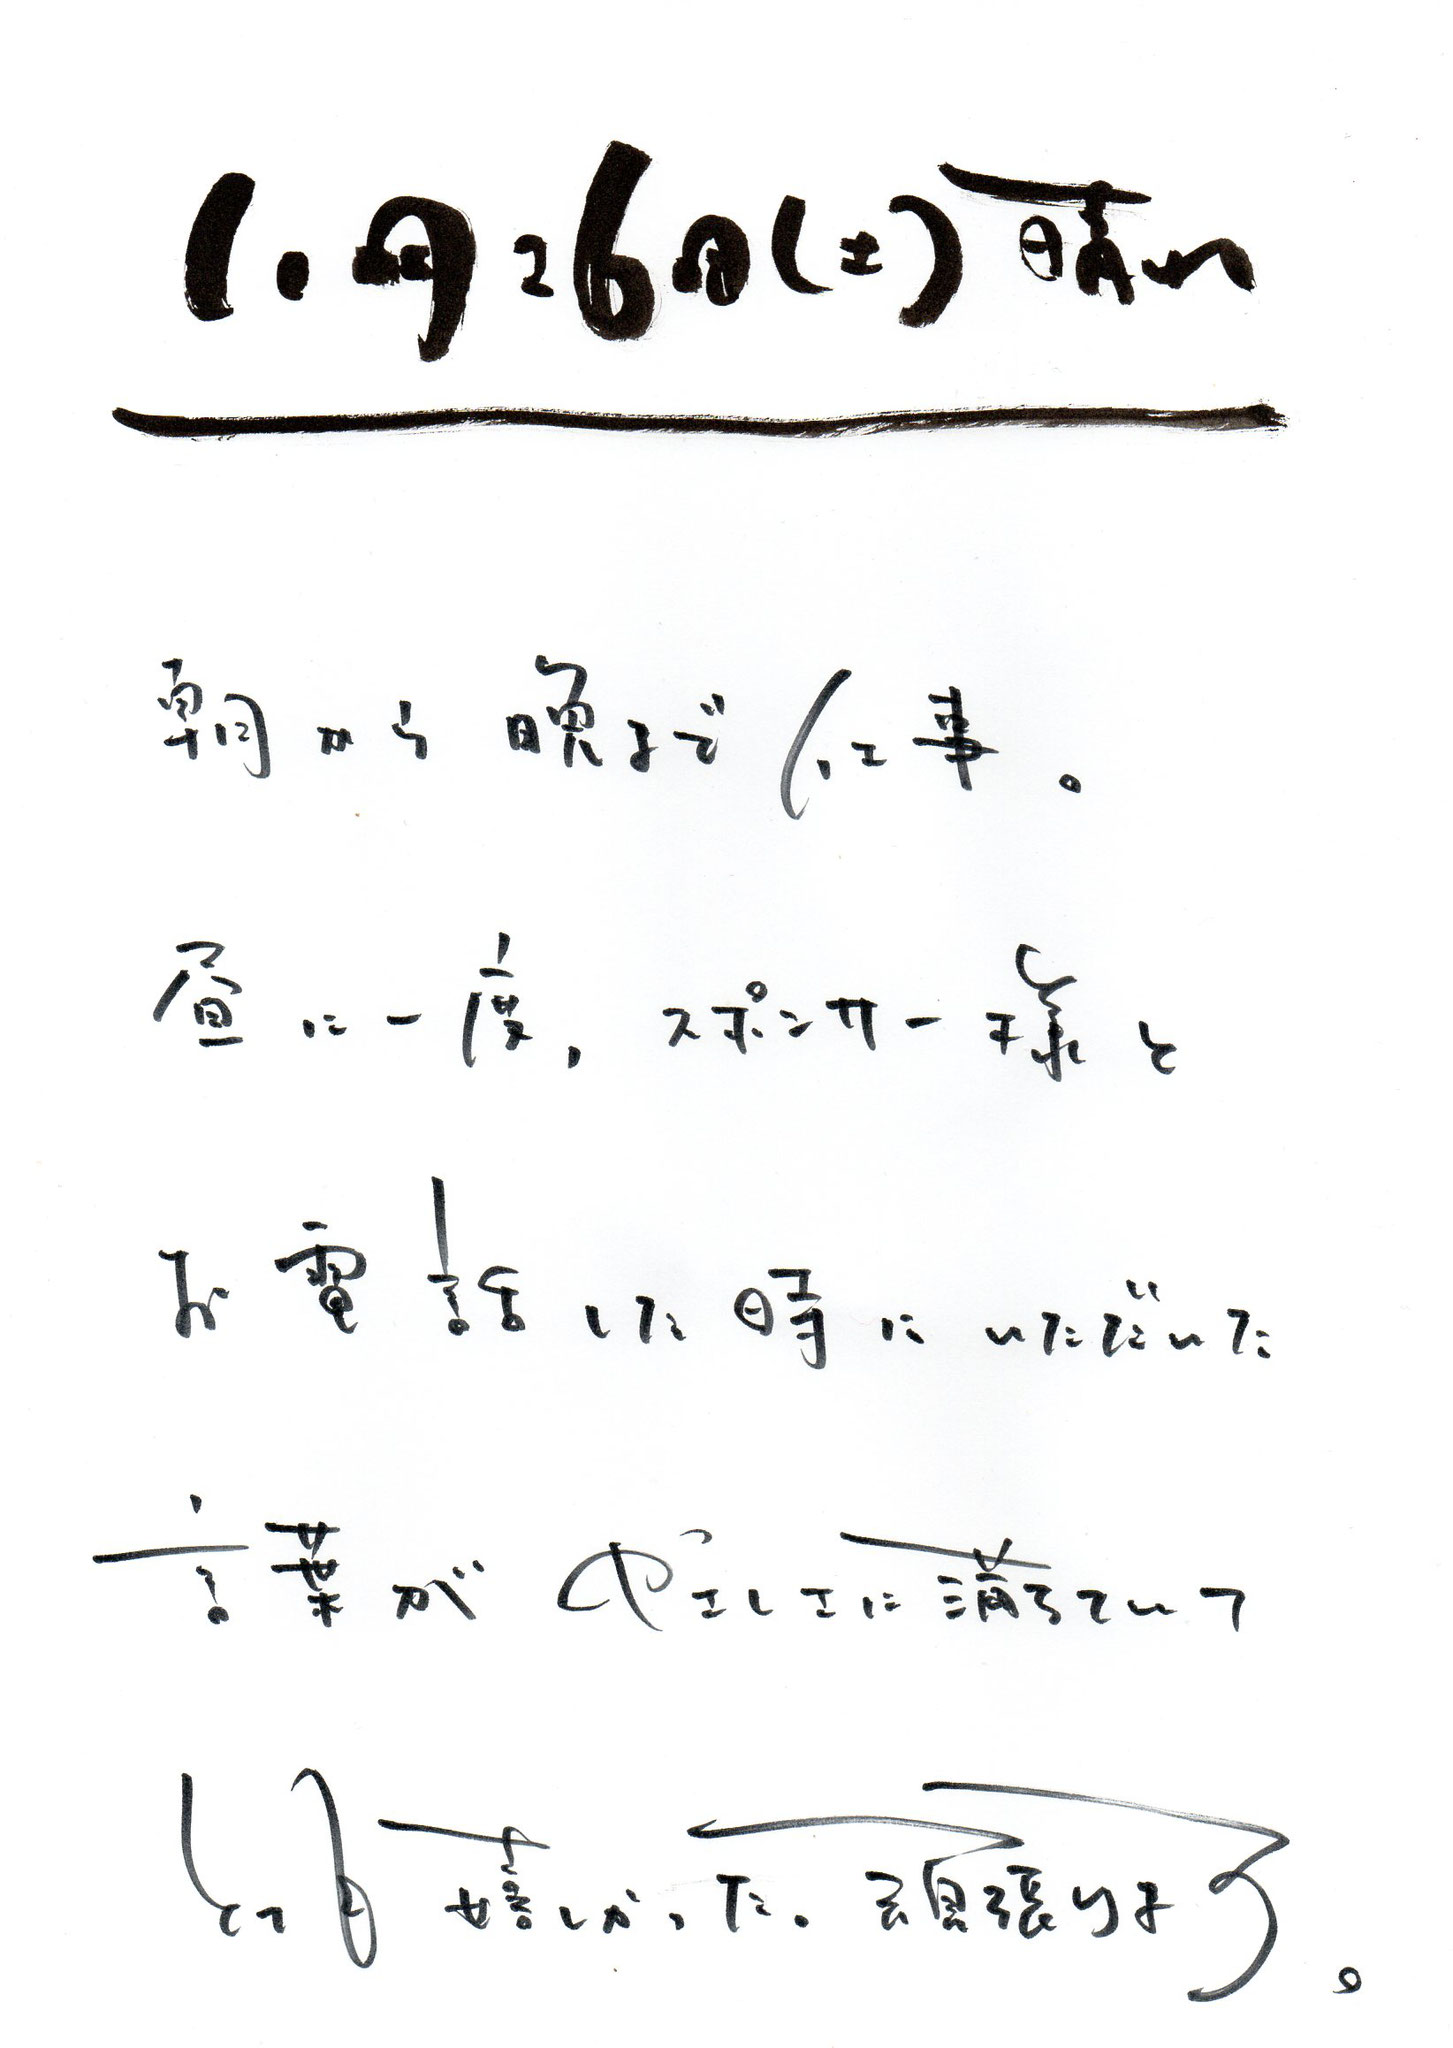 10月26日(土)晴れ
朝から晩まで仕事。
昼に一度、スポンサー様と
お電話した時にいただいた
言葉がやさしさに満ちていて
とても嬉しかった。頑張ります。